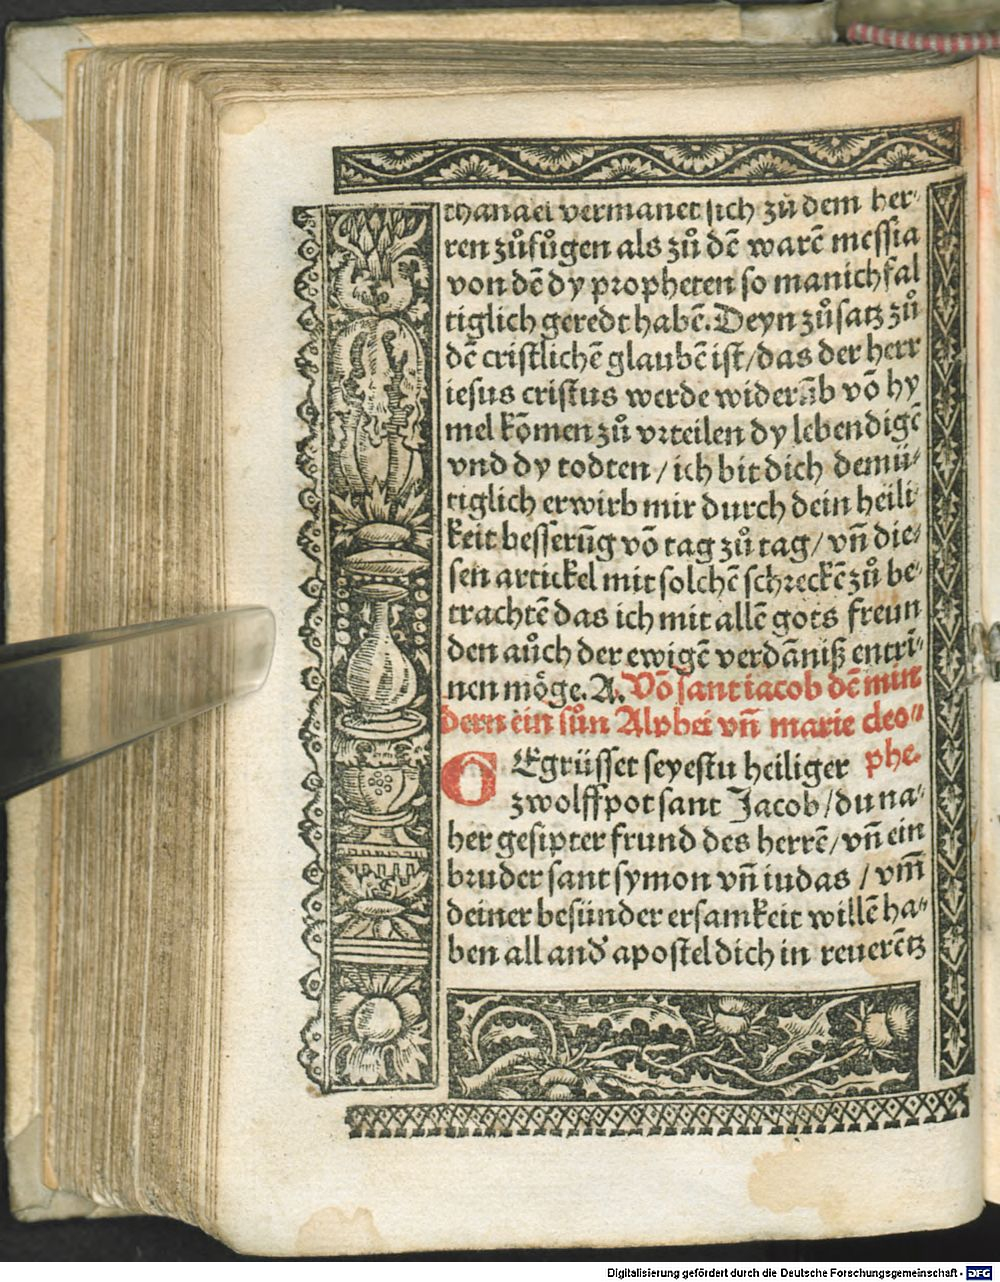 thanael vermanet sich zů dem her⸗
ren zůfůgen als zů dē warē messia
von dē dy propheten so manichfal
tiglich geredt habē. Deyn zůsatz zů
dē cristlichē glaubē ist/das der herr
iesus cristus werde widerūb vō hy
mel kōmen zů vrteilen dy lebendigē
vnd dy todten / ich bit dich demü⸗
tiglich erwirb mir durch dein heili
keit besserūg vō tag zů tag/ vñ die⸗
sen artickel mit solchē schreckē zů be⸗
trachtē das ich mit allē gots freun
den aůch der ewigē verdāniß entrī⸗
nen möge. A. Vō sant iacob dē min
dern ein sůn Alphei vñ marie cleo⸗
phe.
GEgrüsset seyestu heiliger
zwolffpot sant Jacob/du na⸗
her gesipter frund des herrē/ vñ ein
bruder sant symon vñ iudas / vm̄
deiner besünder ersamkeit willē ha⸗
ben all and̄ apostel dich in reuerētz
Digitalisierung gefördert durch die Deutsche Forschungsgemeinschaft - DFG